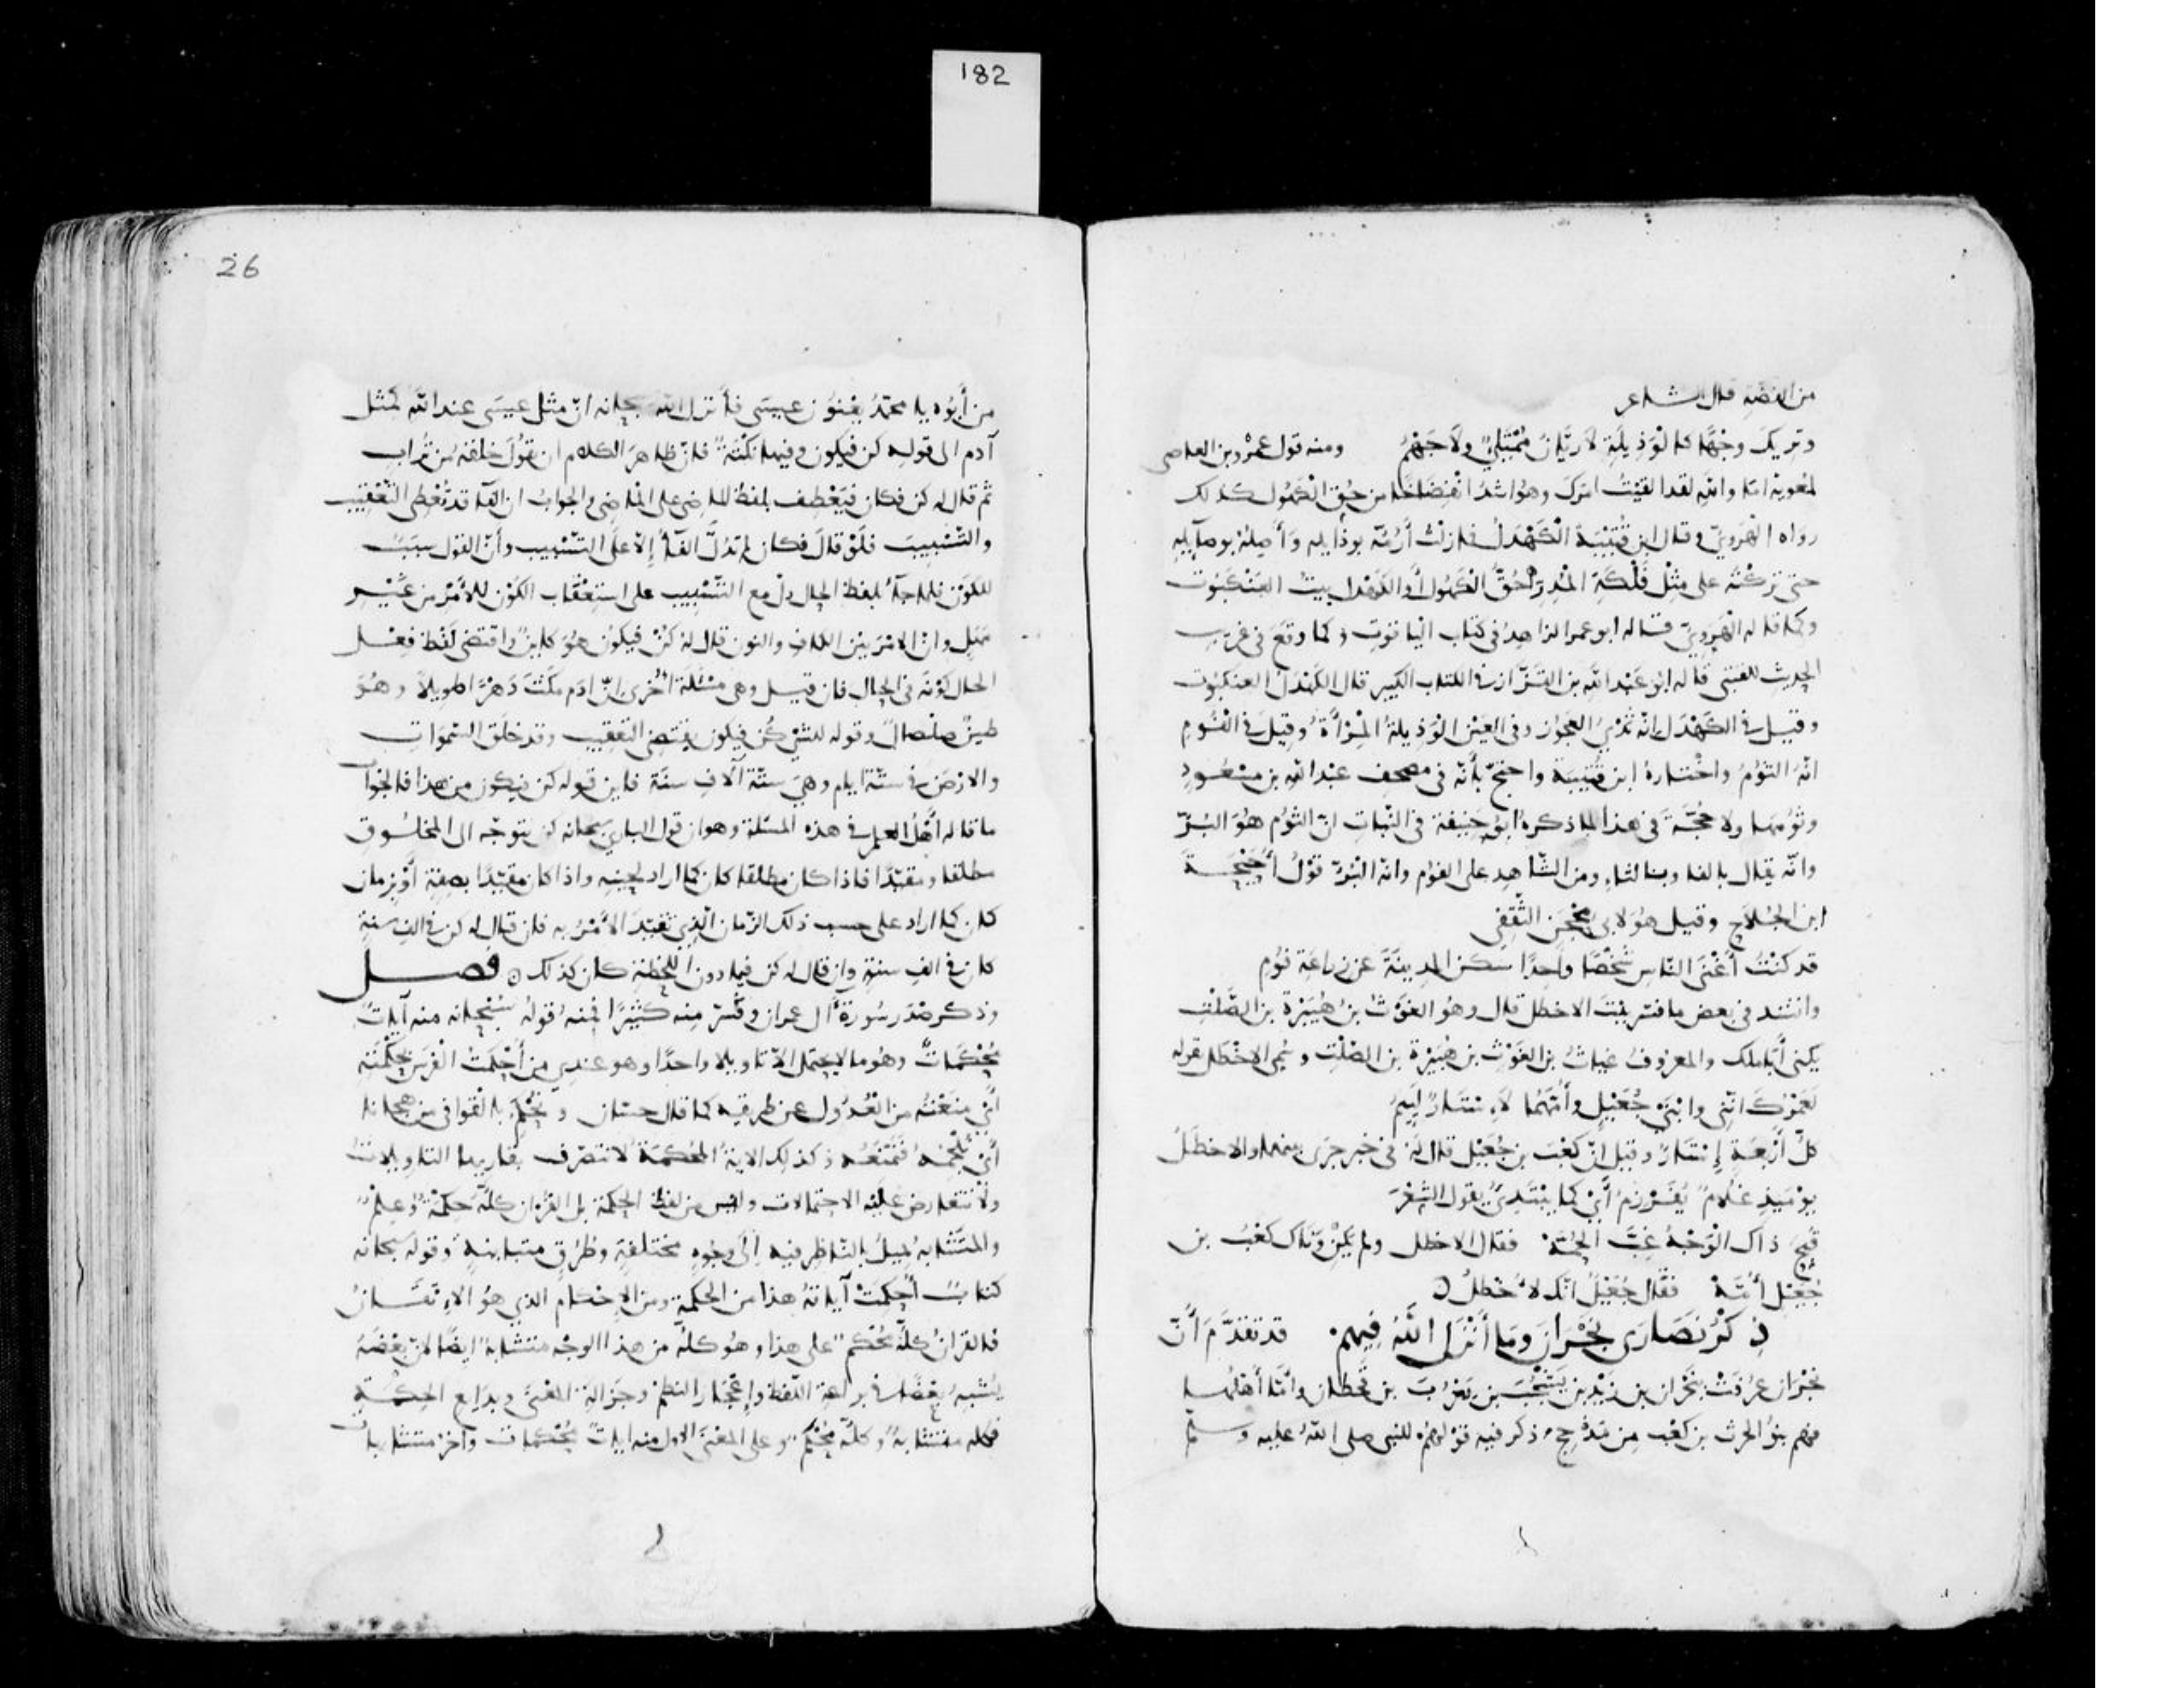 182
من الفضة قال الشاعر
وتريك وجهًا كالوَذِيلَةِ لا ريَّانُ مُمْتَلِئٌ ولا جَهْمُ ومنه قول عمرو بن العاصي
لمعوية اما والله لقد الفيتُ امرَك وهو اشدُ انفِضَاخًا من حُقّ الكَهُول كذلك
رواه الهَرَويّ وقال ابن قُتَيْبَة الكَهْدَلُ فما زلتُ أَرُمُّه بوذَايلِه وَأَصِلُهُ بوصايِلِه
حتى تركتُه على مِثْل فَلْكَةِ المُدِرِّ حُقُّ الكَهُول أَو الكَهْدل بيتُ العَنْكَبُوت
وكما قاله الهَرَويّ قاله ابو عمر الزاهدُ في كتاب الياقوتِ وكما وقَعَ في غريب
الحديث للقتبى قاله ابو عَبْد الله بن القَزَّاز في الكتاب الكبير قال الكَهْدَلُ العنكبوت
وقيل في الكَهْدَل انّه ثَدْيُ العجوز وفي العَيْن الوَذِيلةُ المِرْآةُ وقيلَ في الفُومِ
انّهُ الثوْمُ واخْتارهُ ابن قُتَيبَة واحتجّ بأَنّه في مصحف عبْد الله بن مسْعُودٍ
وثوْمِها ولا حُجَّةَ في هذا لما ذكرهُ ابوُ حَنِيفة في النَّباتِ انّ الثوْم هُوَ البُرّ
وانّه يقال بالفاء وبالثاءِ ومن الشَّاهِد على الفوْم وانّه البُرّ قوْلُ أُحَيْحَةَ
ابن الجُلَاح وقيل هو لابى مِحْجَن الثَّقَفِي
قد كنْتُ أَغْنَى النّاس شَخْصًا واحِدًا سَكن المدِينَة عن زراعَة فُومِ
وانشد في بعض ما فسّر بيْت الاخطل قال وهُو الغَوْثُ بنُ هُبَيْرَة بن الصَّلْتِ
يكنى أَبا ملك والمعروفُ غياثُ بن الغَوْثِ بن هُبَيْرَة بن الصَّلْتِ وسُمي الاخْطل بقوله
لَعَمْرُكَ انّني وابْنَيْ جُعَيْلٍ وأُمَّهُما لَإسْتَارٌ لَئِيمُ
كلُّ أَرْبَعَةٍ إِسْتَارٌ وقيل انّ كَعْبَ بن جُعَيْل قال لَهُ في خبر جَرَى بينهما والاخطَلُ
يوْمَئِذٍ غلامٌ يُقَرْزِمُ أَيْ كما يَبْتَدِئُ يقول الشِعْرَ
قُبِّحَ ذاك الوَجْهُ غِبَّ الحُمَّهْ فقال الاخطل ولم يَكُنْ وَنَاك كَعْبُ بن
جُعَيْل أُمَّهْ فقال جُعَيْلُ انّك لأَخْطَلُ
ذِكْرُ نَصَارَى نَجْرانَ ومَا أَنْزَل اللّهُ فِيهم قد تقدَّم أَنّ
نجْرَان عرُفَتْ بنجْران بن زيْد بن يَشْجُبَ بن يَعْرُبَ بن قَحطان وأمّا أَهْلُها
فهم بنوُ الحرث بن كعْب مِن مَذْحِج ذكر فيه قوْلهُم للنبى صلى اللّهُ عليه وسلّم
26
من أَبُوه يا محمّدُ يعْنوُن عيسَى فأَنزل اللّه سبحانه انّ مثل عيسَى عند اللّه كمثل
آدم الى قوله كن فيكون وفيها نكْتَةٌ فانّ ظاهرَ الكلام ان يقُولَ خلقهُ مِن تُراب
ثم قال له كن فكان فيَعْطِف بلفظ الماضي على الماضي والجوابُ ان الفاء قد تُعْطِى التَّعْقِيب
والتّسْبِيبَ فلَوْ قالَ فكان لم تدُلَّ الفاءُ إلا على التَّسْبيب وأنّ القول سببٌ
للكوْن فلما جاءَ بلفظ الحال دلّ مع التّسْبِيب على استِعْقَاب الكوْن للأمْر من غَيْر
مَهَلٍ وانّ الامْرَ بيْن الكاف والنون قال له كُنْ فيكونُ هوَ كاينٌ واقتضى لفْظ فِعْل
الحال كوْنَهُ في الحال فان قيل وهى مسْئلَة أُخْرى انّ ادم مكَثَ دَهْرًا طويلاً وهُوَ
طينٌ صلْصالٌ وقوله للشئ كُن فيكون يقتضى التعْقِيب وقد خلَق السّموَاتِ
والارْضَ في ستّة ايام وهيَ ستّة آلاف سنَة فاين قوله كن فيكون من هذا فالجواب
ما قاله أَهْلُ العلم في هذه المسئلة وهو ان قول البارى سبحانه كن يتوجّه الى المخلُوق
مطلقا ومقيّدًا فاذا كان مطلقا كان كما اراد لحينِه واذا كان مقيّدًا بصِفةٍ أَوْ بزمان
كان كما اراد على حسب ذلك الزّمان الّذي تَقَيّدَ الأمْرُ به فان قال له كن في الف سنةٍ
كان في الف سنةٍ وان قال له كن فيما دون اللَّحْظة كان كذلك فصل
وذكر صَدْرَ سُورَة آل عمران وفسّر منه كثيرًا فمنهُ قولهُ سُبْحانه منه آياتٌ
مُحْكَمَاتٌ وهُو ما لا يحتمل الاّ تأويلا واحدًا وهو عندي من أَحْكَمْتُ الفَرَس بحَكَمَتِه
أَيْ منَعْتُه من العُدُول عن طريقه كما قال حسّان ونُحْكِمُ بالقوافي من هجانا
أَيْ نُلْجِمُهُ فنَمْنَعُه وكذلك الاية المُحْكمَةُ لا تتصرّف بقاريها التأويلات
ولا تتعارض عليْه الاحتمالات وليس من لفظ الحكمة بل القرْان كلّهُ حِكمَةٌ وعِلْمٌ
والمتشَابهُ يميلُ بالنّاظِر فيه إلَى وجُوهٍ مختلفةٍ وطُرُقٍ متباينةٍ وقوله سبحانه
كتابٌ أُحْكِمَتْ آياتهُ هذا من الحكْمةِ ومن الإحْكام الذي هوُ الاِتقَانُ
فالقرانُ كلّهُ مُحْكَمٌ على هذا وهُو كلّه من هذا الوجْه متشابهٌ ايضًا لانّ بَعْضَهُ
يُشْبِهُ بَعْضًا في براعة اللّفظ وإعْجَاز النظم وجَزَالةِ المَعْنَى وبدَايع الحِكْمَةِ
فكلّه متشابهٌ وكلّه مُحْكمٌ وعلى المعْنى الاول منه ايَاتٌ مُحْكمات واخر متشابهات